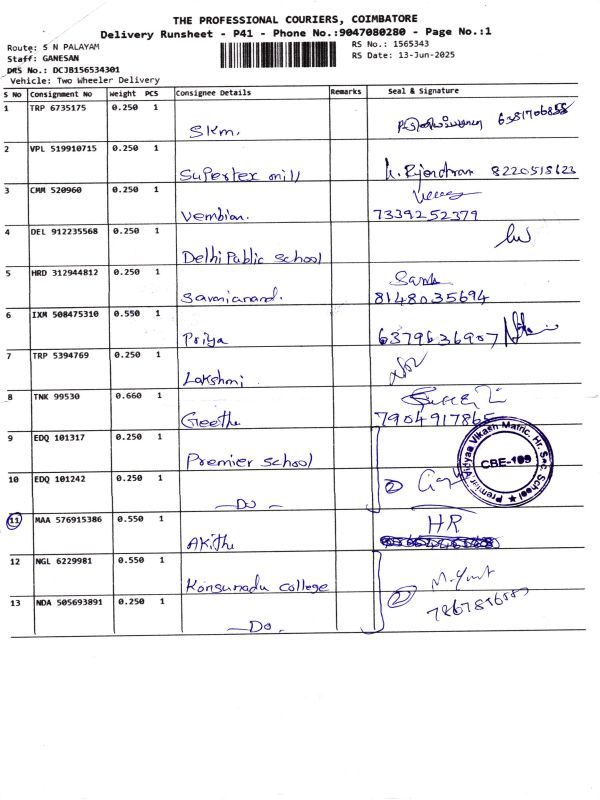 THE PROFESSIONAL COURIERS, COIMBATORE
Delivery Runsheet - P41 - Phone No.:9047080280 - Page No.:1
Route: S N PALAYAM
RS No.: 1565343
Staff: GANESAN
RS Date: 13-Jun-2025
DRS No.: DCJB156534301
Vehicle: Two Wheeler Delivery
S No Consignment No Weight PCS Consignee Details Remarks Seal & Signature
1 TRP 6735175 0.250 1
Skm.
2 VPL 519910715 0.250 1
Supertex mill 8220518623
3 CMM 520960 0.250 1
Vembian. 7339252379
4 DEL 912235568 0.250 1
Delhi Public school
5 HRD 312944812 0.250 1
8148035694
6 IXM 508475310 0.550 1
Priya 6379636907
7 TRP 5394769 0.250 1
Lakshmi
8 TNK 99530 0.660 1
Geetha 7904917865
9 EDQ 101317 0.250 1
Premier School
Premier Vidyaa Vikash Matric. Hr. Sec. School
CBE-109
10 EDQ 101242 0.250 1
2
—Do—
11 MAA 576915386 0.550 1
HR
12 NGL 6229981 0.550 1
college
2
13 NDA 505693891 0.250 1
—Do.